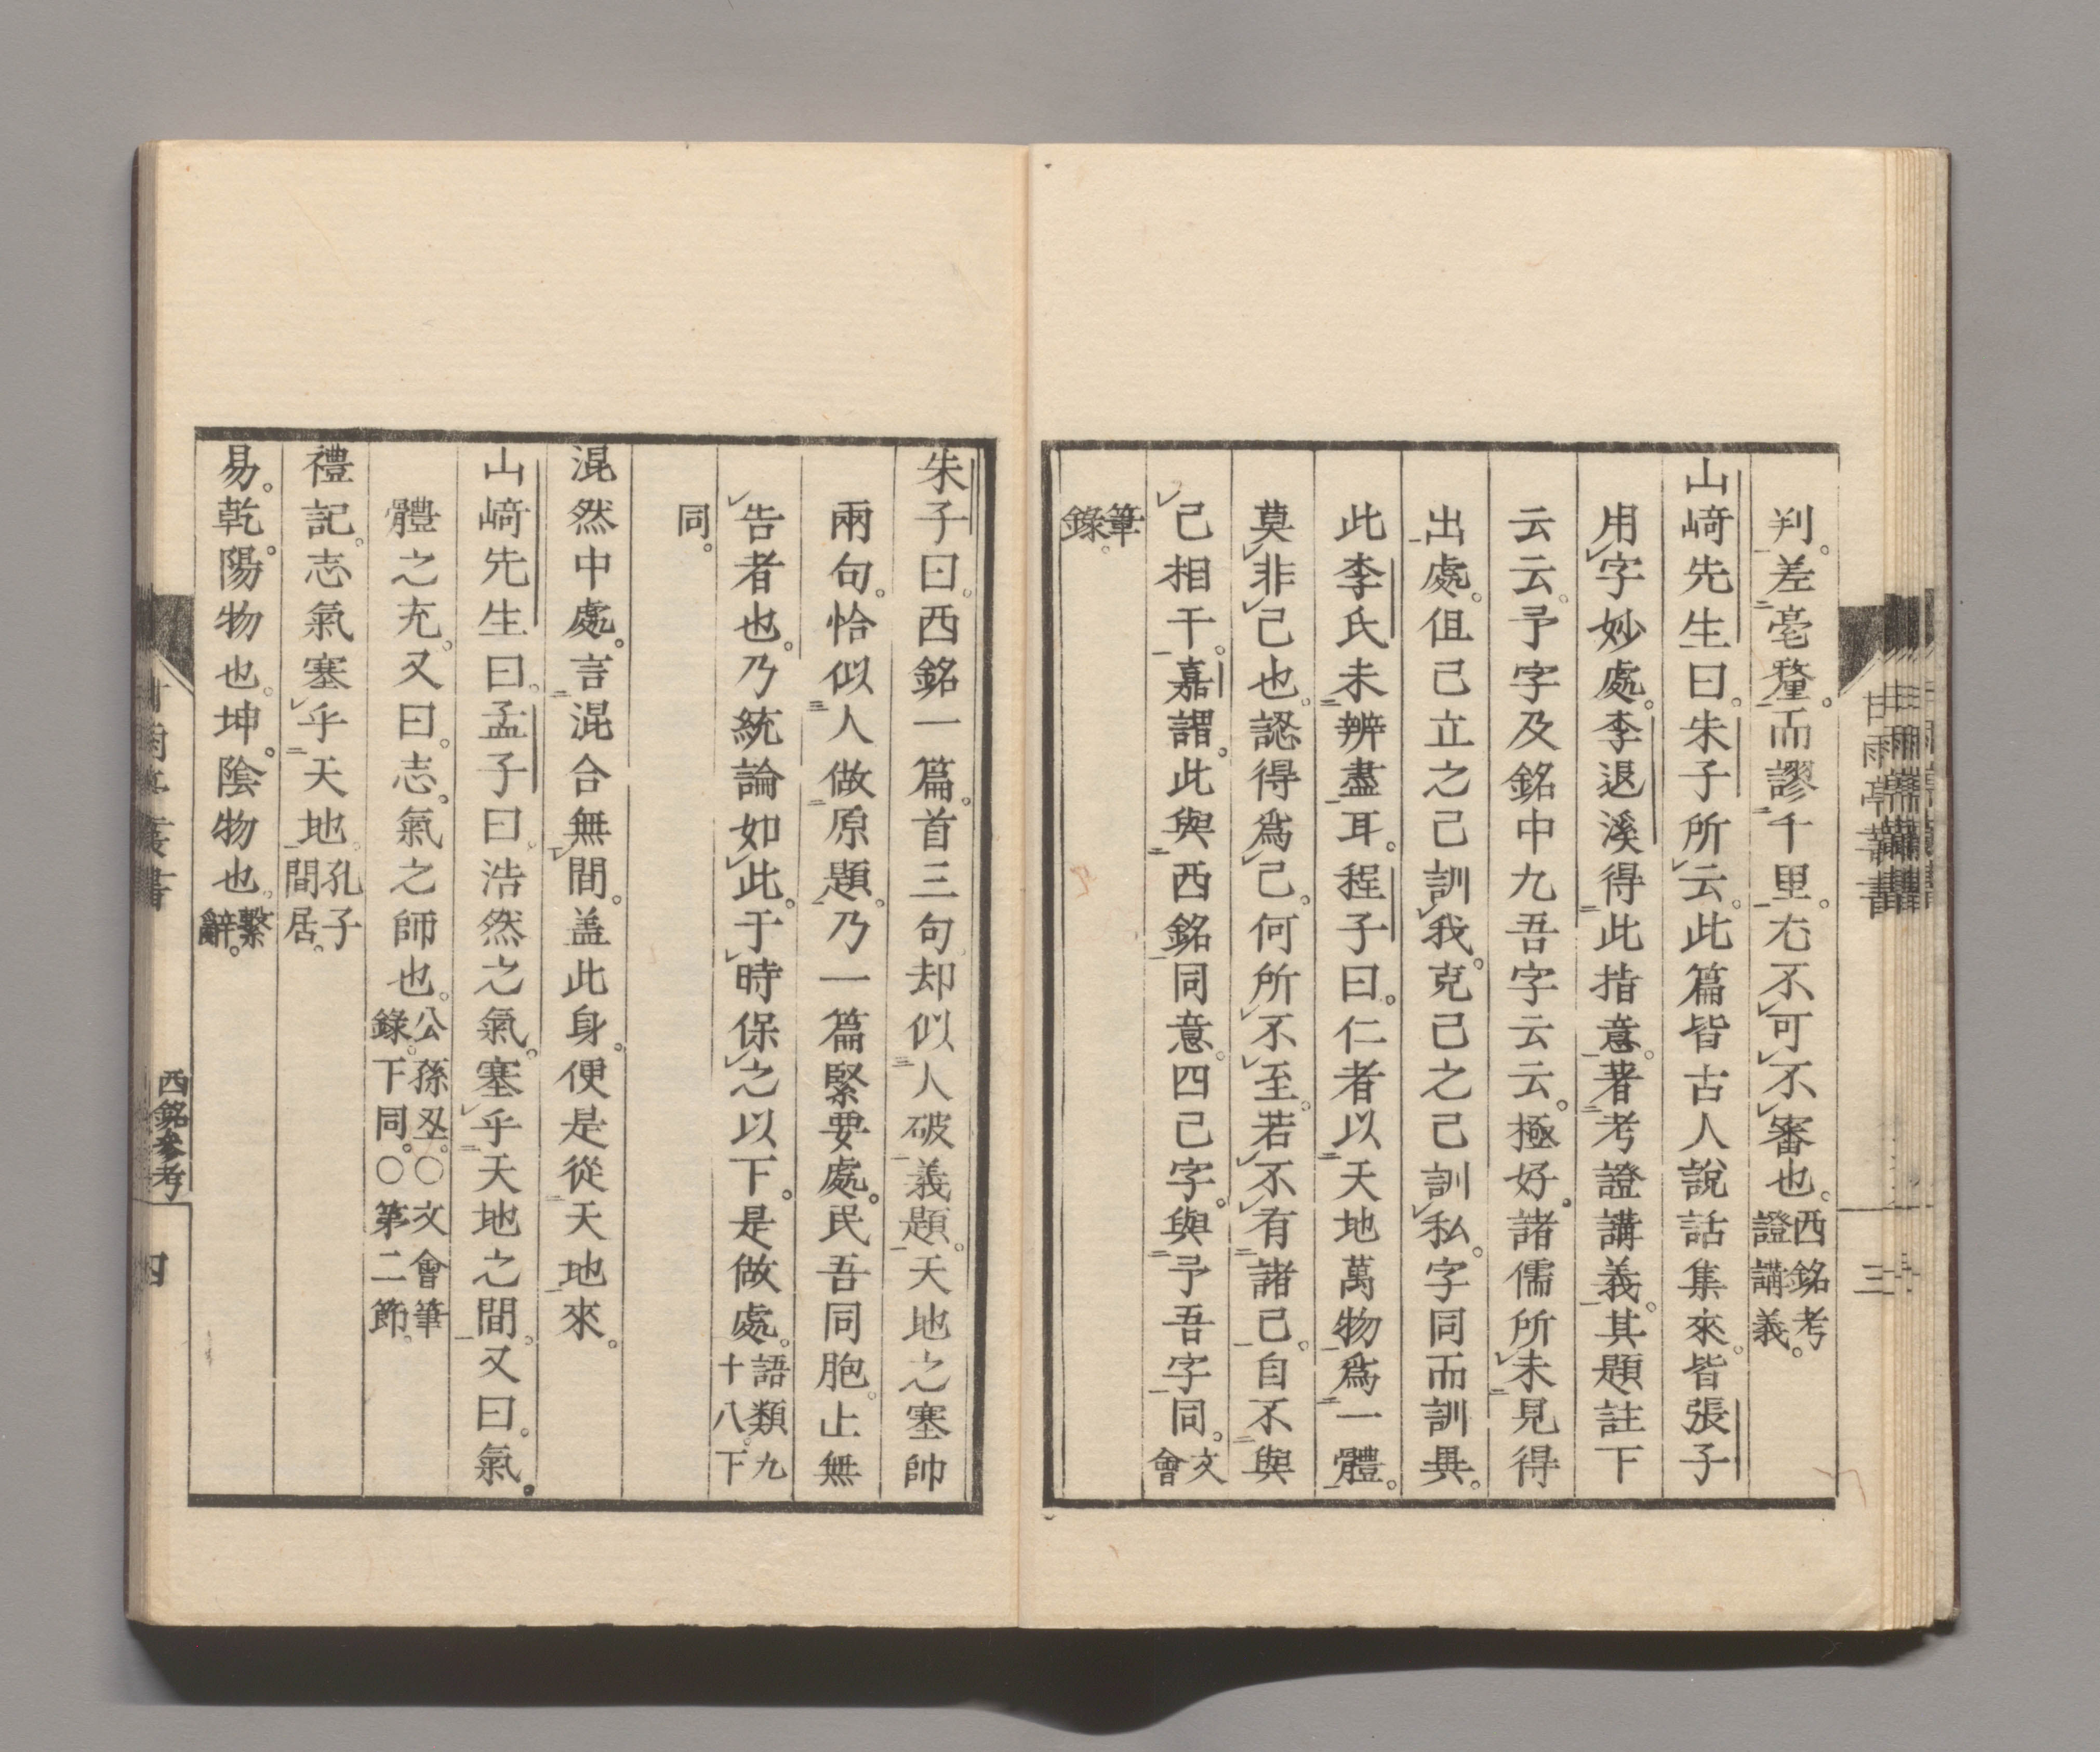 判。差毫釐。而謬千里。尤不可不審也。西銘考證講義。
山﨑先生曰。朱子所云。此篇皆古人說話集來。皆張子
用字妙處。李退溪得此指意。著考證講義。其題註下
云云。予字及銘中九吾字云云。極好。諸儒所未見得
出處。但己立之己訓我。克己之己訓私。字同而訓異。
此李氏未辨盡耳。程子曰。仁者以天地萬物爲一體。
莫非己也。認得爲己。何所不至。若不有諸己。自不與
己相干。嘉謂。此與西銘同意。四己字。與予吾字同。文會
筆錄。
甘雨亭叢書
三
朱子曰。西銘一篇。首三句却似人破義題。天地之塞帥
兩句。恰似人做原題。乃一篇緊要處。民吾同胞。止無
告者也。乃統論如此。于時保之以下。是做處。語類九十八。下
同。
混然中處。言混合無間。盖此身。便是從天地來。
山﨑先生曰。孟子曰。浩然之氣。塞乎天地之間。又曰。氣。
體之充。又曰。志。氣之師也。公孫丑。○文會筆錄。下同。○第二節。
禮記。志氣塞乎天地。孔子間居。
易。乾。陽物也。坤。陰物也。繫辭。
西銘參考
四